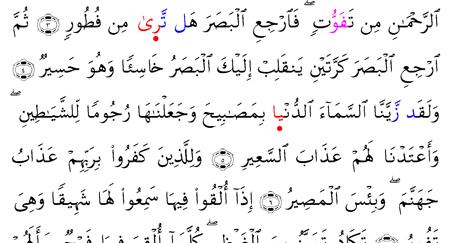 ٱلرَّحْمَـٰنِ مِن تَفَوُّتٍ ۖ فَٱرْجِعِ ٱلْبَصَرَ هَل تَّرىٰ مِن فُطُورٍ ٣ ثُمَّ
ٱرْجِعِ ٱلْبَصَرَ كَرَّتَيْنِ يَنقَلِبْ إِلَيْكَ ٱلْبَصَرُ خَاسِئًا وَهُوَ حَسِيرٌ ٤
وَلَقَد زَّيَّنَّا ٱلسَّمَآءَ ٱلدُّنْيا بِمَصَـٰبِيحَ وَجَعَلْنَـٰهَا رُجُومًا لِّلشَّيَـٰطِينِ ۖ
وَأَعْتَدْنَا لَهُمْ عَذَابَ ٱلسَّعِيرِ ٥ وَلِلَّذِينَ كَفَرُوا۟ بِرَبِّهِمْ عَذَابُ
جَهَنَّمَ ۖ وَبِئْسَ ٱلْمَصِيرُ ٦ إِذَآ أُلْقُوا۟ فِيهَا سَمِعُوا۟ لَهَا شَهِيقًا وَهِىَ
تَفُورُ ٧ تَكَادُ تَمَيَّزُ مِنَ ٱلْغَيْظِ ۖ كُلَّمَآ أُلْقِىَ فِيهَا فَوْجٌ سَأَلَهُمْ